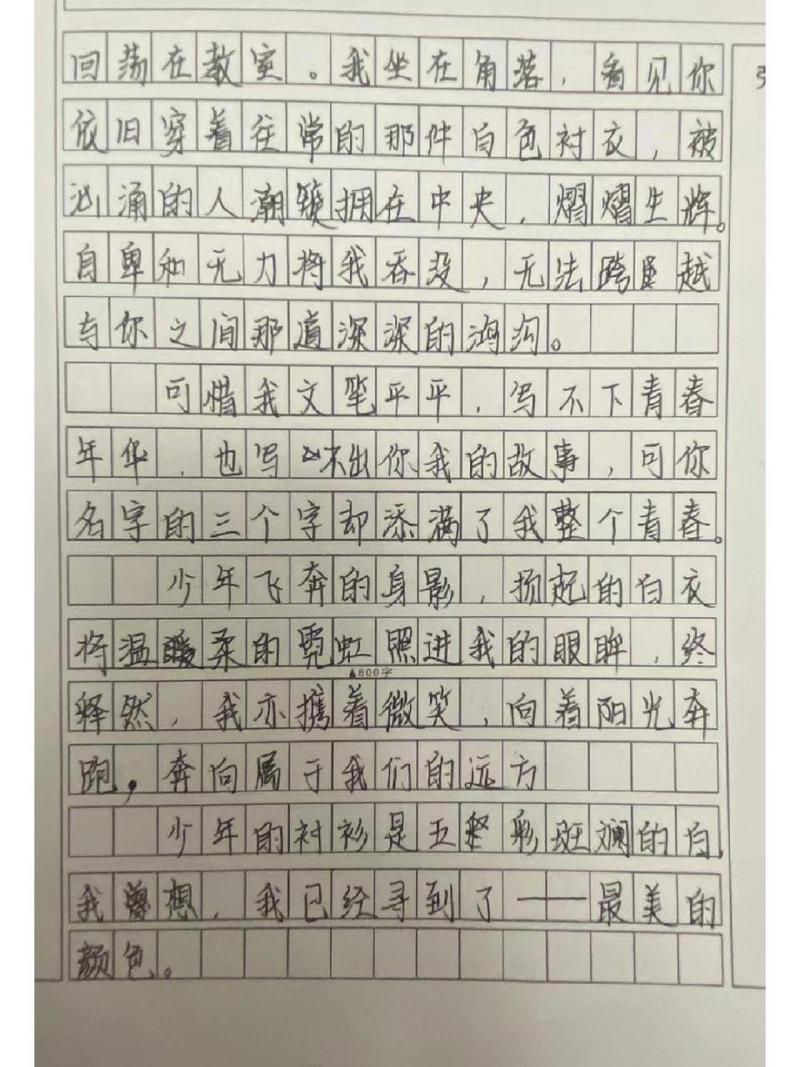 回荡在教室。我坐在角落，看见你
依旧穿着往常的那件白色衬衣，被
汹涌的人潮簇拥在中央，熠熠生辉。
自卑和无力将我吞没，无法跨越
与你之间那道深深的鸿沟。
可惜我文笔平平，写不下青春
年华，也写不出你我的故事，可你
名字的三个字却添满了我整个青春。
少年飞奔的身影，扬起的白衣
将温柔的霓虹照进我的眼眸，终
▲800字
释然，我亦携着微笑，向着阳光奔
跑，奔向属于我们的远方
少年的衬衫是五彩斑斓的白，
我想，我已经寻到了——最美的
颜色。